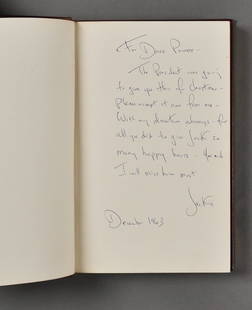 For Dave Powers -
The President was going
to give you this for Christmas -
Please accept it now from me -
With my devotion always for
all you did to give Jack so
many happy hours - You and
I will miss him most
Jackie
December 1963